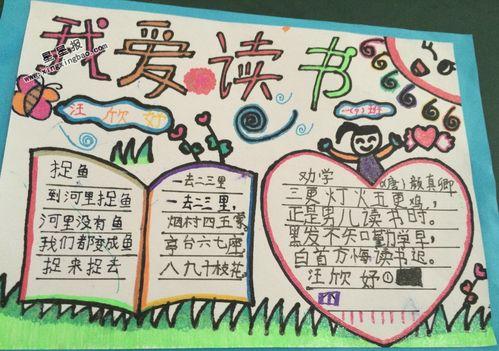 我爱读书
星星报
www.xingxingbao.com
汪欣妤
一(9)班
捉鱼
到河里捉鱼
河里没有鱼
我们都变成鱼
捉来捉去
一去二三里
一去二三里,
烟村四五家,
亭台六七座
八九十枝花。
劝学
(唐)颜真卿
三更灯火五更鸡,
正是男儿读书时。
黑发不知勤学早,
白首方悔读书迟。
汪欣妤